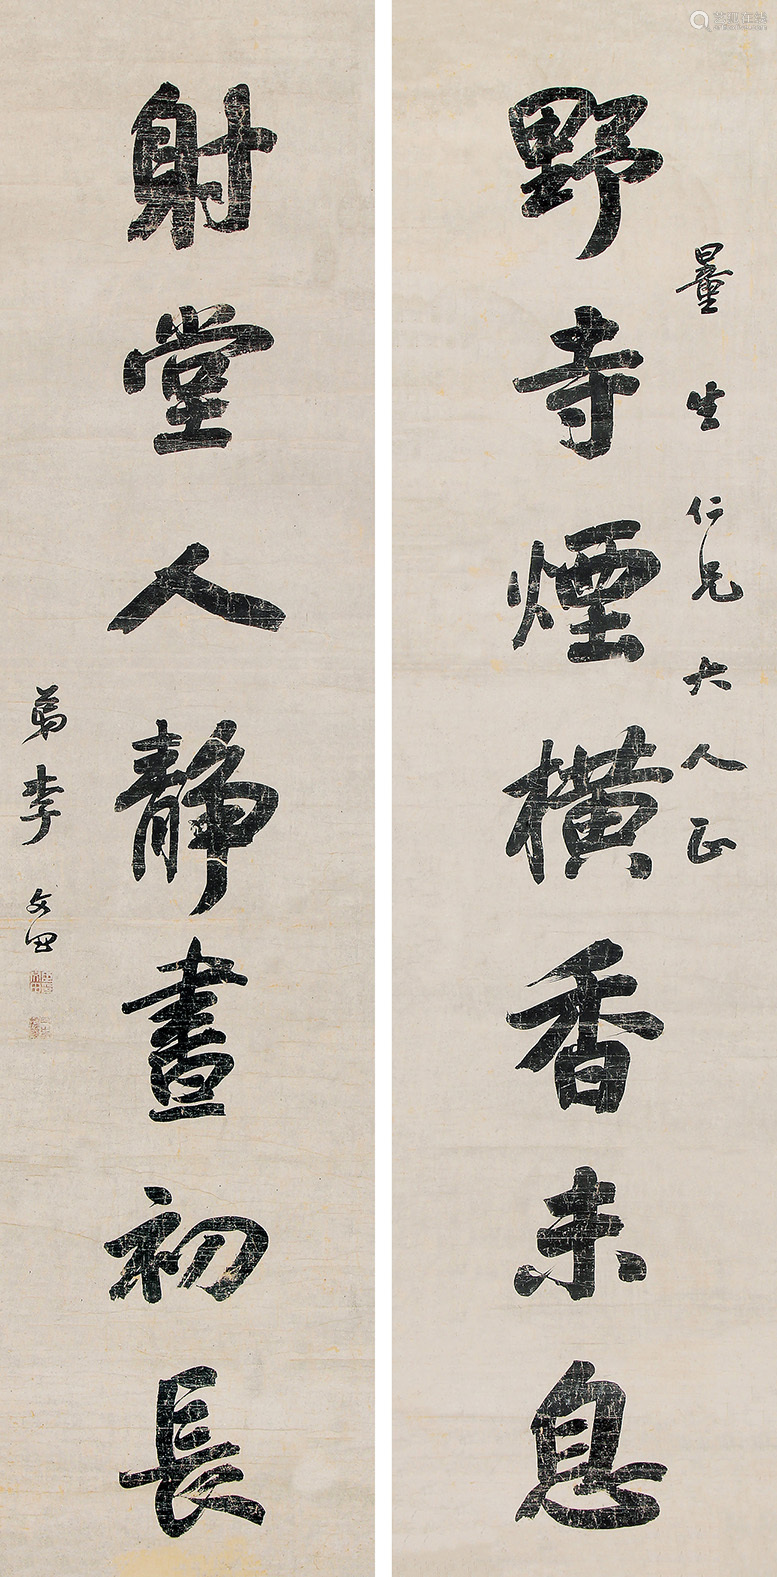 野寺煙橫香未息
量生仁兄大人正
射堂人靜晝初長
弟李文田